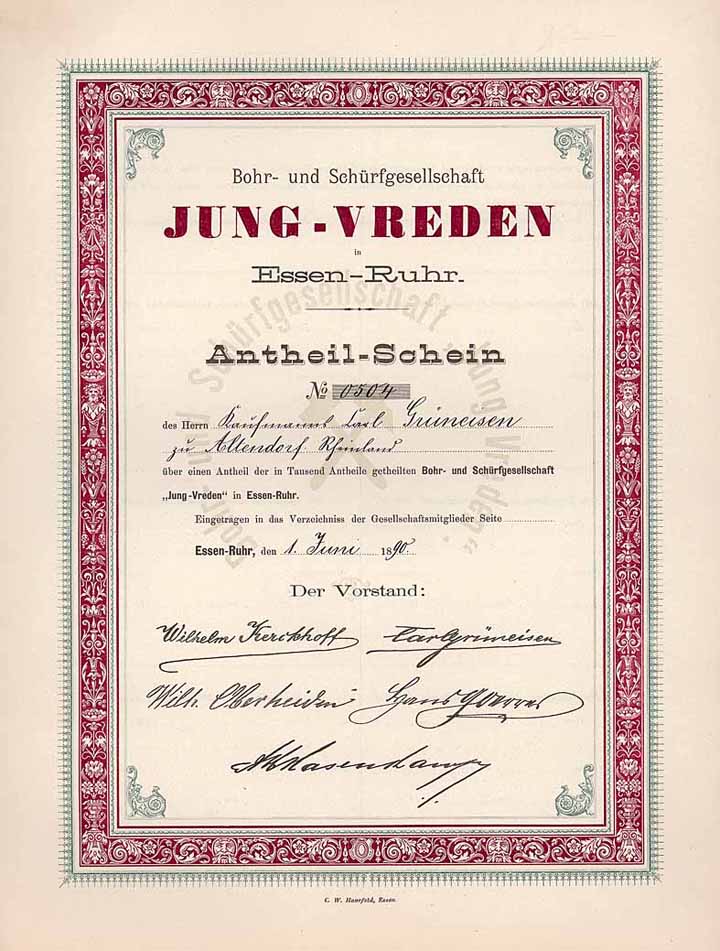 Bohr- und Schürfgesellschaft
JUNG-VREDEN
in
Essen-Ruhr.
Antheil-Schein
No 0504
des Herrn Kaufmanns Carl Grüneisen
zu Altendorf Rheinland
über einen Antheil der in Tausend Antheile getheilten Bohr- und Schürfgesellschaft
„Jung-Vreden“ in Essen-Ruhr.
Eingetragen in das Verzeichniss der Gesellschaftsmitglieder Seite
Essen-Ruhr, den 1. Juni 1890.
Der Vorstand:
Wilhelm Kerckhoff Carl Grüneisen
Wilh. Oberheiden Hans Goerres
Bohr- und Schürfgesellschaft „Jung Vreden“
C. W. Haarfeld, Essen